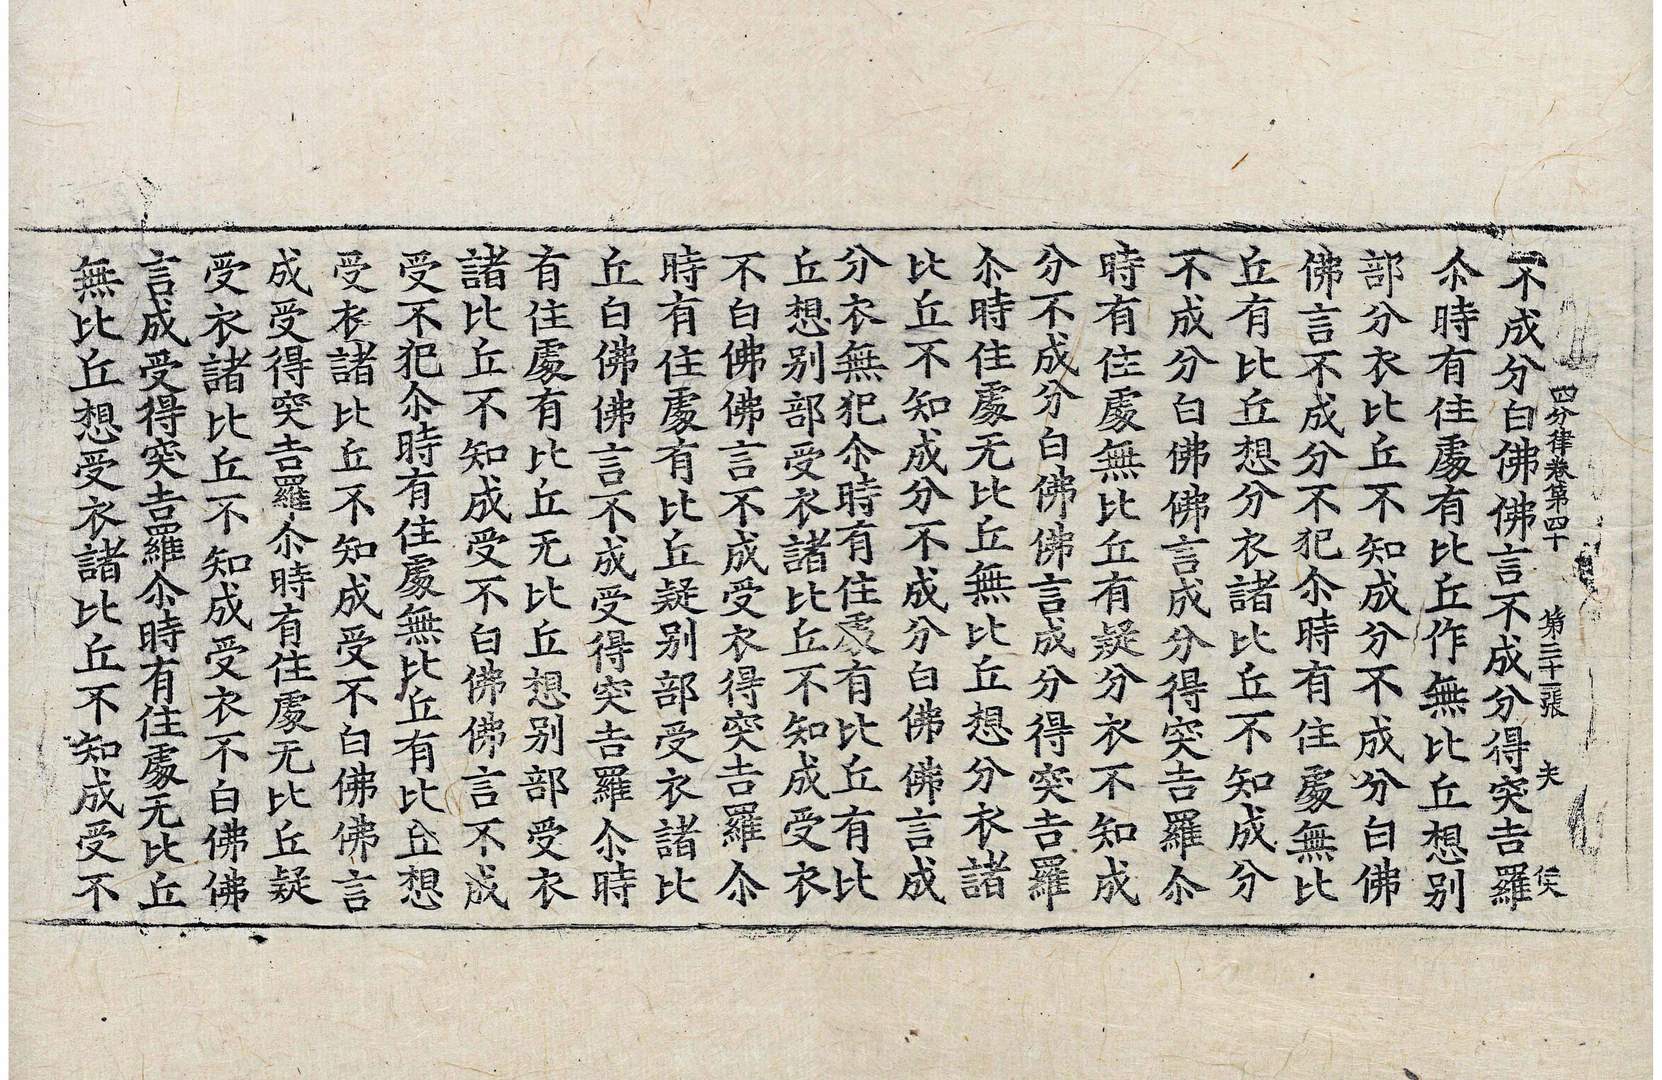 四分律卷第四十 第三十二張 夫
不成分白佛佛言不成分得突吉羅
尒時有住處有比丘作無比丘想別
部分衣比丘不知成分不成分白佛
佛言不成分不犯尒時有住處無比
丘有比丘想分衣諸比丘不知成分
不成分白佛佛言成分得突吉羅尒
時有住處無比丘有疑分衣不知成
分不成分白佛佛言成分得突吉羅
尒時住處无比丘無比丘想分衣諸
比丘不知成分不成分白佛佛言成
分衣無犯尒時有住處有比丘有比
丘想別部受衣諸比丘不知成受衣
不白佛佛言不成受衣得突吉羅尒
時有住處有比丘疑別部受衣諸比
丘白佛佛言不成受得突吉羅尒時
有住處有比丘无比丘想別部受衣
諸比丘不知成受不白佛佛言不成
受不犯尒時有住處無比丘有比丘想
受衣諸比丘不知成受不白佛佛言
成受得突吉羅尒時有住處无比丘疑
受衣諸比丘不知成受衣不白佛佛
言成受得突吉羅尒時有住處无比丘
無比丘想受衣諸比丘不知成受不